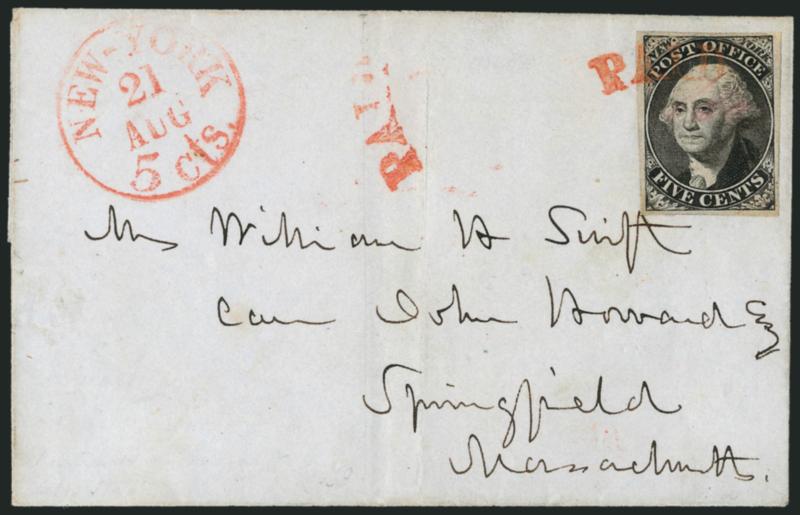 NEW-YORK
21
AUG
5 cts.
PAID
PAID
NEW YORK
POST OFFICE
FIVE CENTS
Mrs William H Swift
care John Howard Esq
Springfield
Massachusetts.